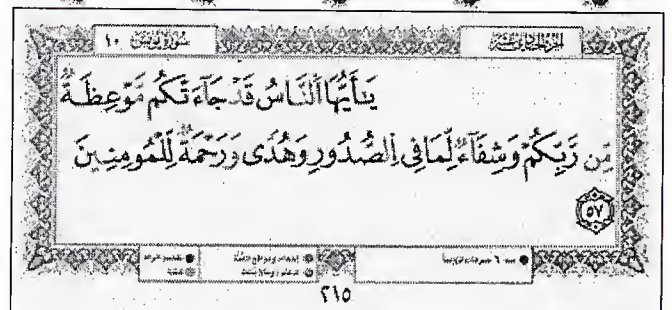 سُورَةُ يُونُسَ ١٠
الجزء الحادي عشر
يَٰٓأَيُّهَا ٱلنَّاسُ قَدْ جَآءَتْكُم مَّوْعِظَةٌ
مِّن رَّبِّكُمْ وَشِفَآءٌ لِّمَا فِى ٱلصُّدُورِ وَهُدًى وَرَحْمَةٌ لِّلْمُؤْمِنِينَ
٥٧
٢١٥